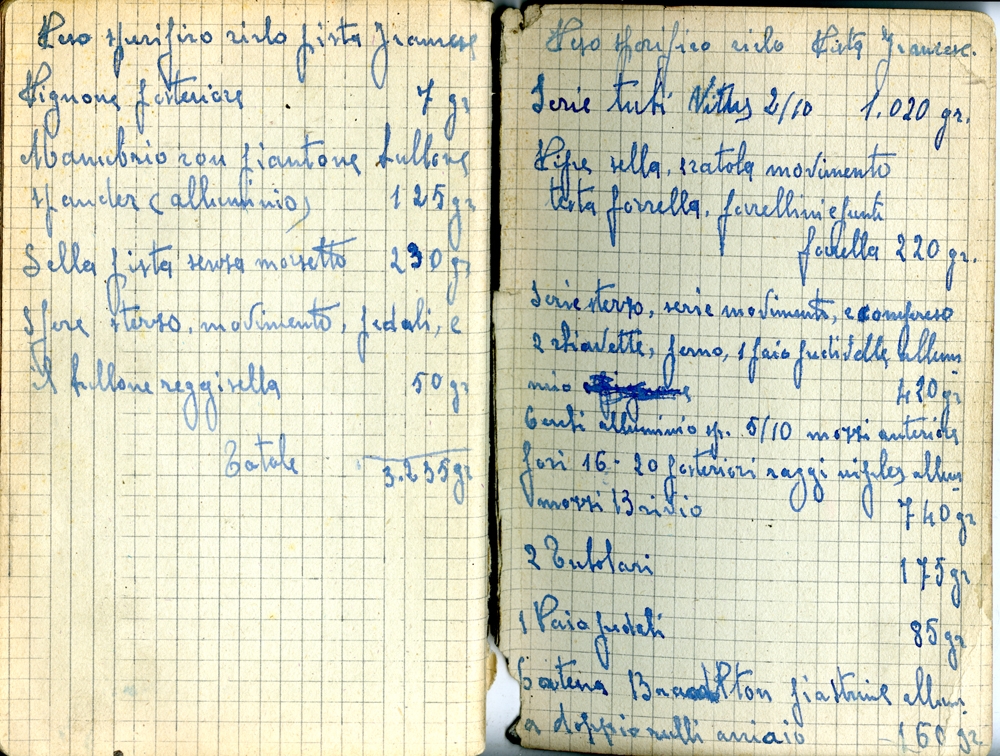 Peso spesifico ciclo pista Francese
Pignone posteriore 7 gr
Manubrio con piantone bullone
spander (alluminio) 125 gr
Sella pista senza morsetto 230 gr
Sfere sterzo, movimento, pedali, e
il bullone reggisella 50 gr
Totale 3.235 gr
Peso spesifico ciclo Pista Francese.
Serie tubi Vitus 2/10 1.020 gr.
Pipe sella, scatola movimento
testa forcella, forcellini e punti
forcella 220 gr.
Serie sterzo, serie movimento, e compreso
2 chiavette, perno, 1 paio pedivelle allum
inio 420 gr
Cerchi alluminio sp. 5/10 mozzi anteriore
fori 16-20 posteriori raggi niples allum
mozzi Brivio 740 gr
2 Tubolari 175 gr
1 Paio pedali 85 gr
Catena piastrine allum.
a doppio rulli acciaio 160 gr.